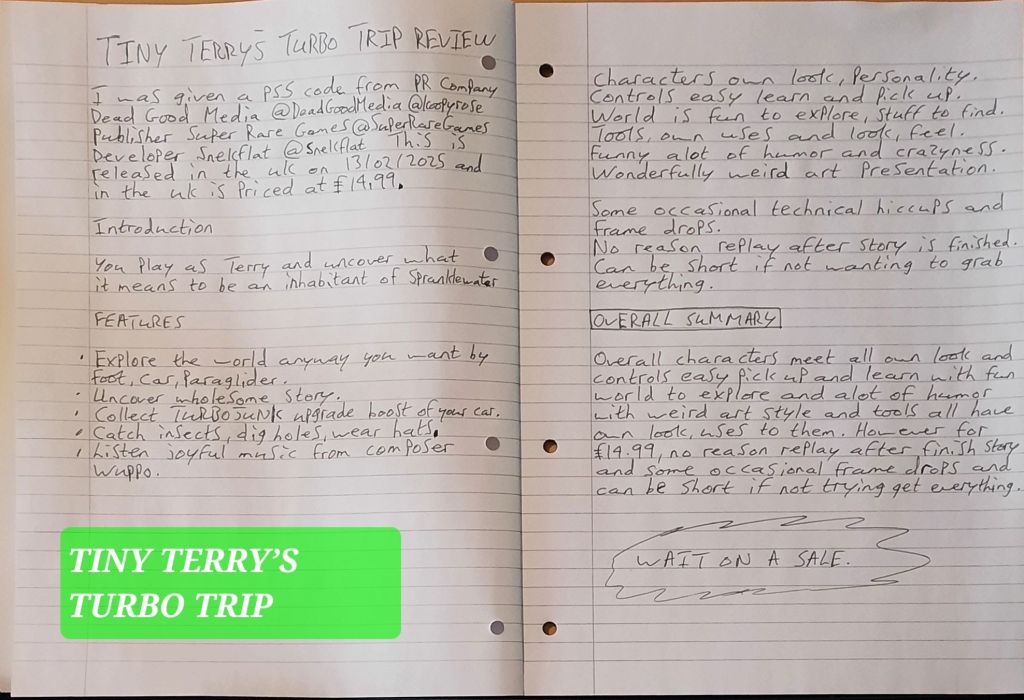 TINY TERRY'S TURBO TRIP REVIEW
I was given a PS5 code from PR Company
Dead Good Media @DeadGoodMedia @koopyrose
Publisher Super Rare Games @SuperRareGames
Developer Snekflat @Snekflat This is
released in the uk on 13/02/2025 and
in the uk is Priced at £14.99.
Introduction
You Play as Terry and uncover what
it means to be an inhabitant of Spranklewater
FEATURES
• Explore the world anyway you want by
foot, Car, Paraglider.
• Uncover wholesome Story.
• Collect TURBOJUNK upgrade boost of your car.
• Catch insects, dig holes, wear hats.
• Listen joyful music from composer
Wuppo.
TINY TERRY'S
TURBO TRIP
Characters own look, Personality.
Controls easy learn and Pick up.
World is fun to explore, Stuff to find.
Tools, own uses and look, feel.
Funny alot of humor and crazyness.
Wonderfully weird art Presentation.
Some occasional technical hiccups and
frame drops.
No reason replay after Story is finished.
Can be Short if not wanting to grab
everything.
OVERALL SUMMARY
Overall characters meet all own look and
controls easy Pick up and learn with fun
world to explore and alot of humor
with weird art style and tools all have
own look, uses to them. However for
£14.99, no reason replay after finish Story
and some occasional frame drops and
can be Short if not trying get everything.
WAIT ON A SALE.